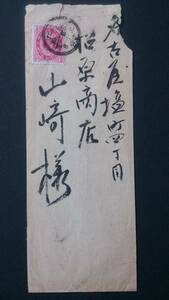 名古屋塩町四丁目
松泉商店
山崎様